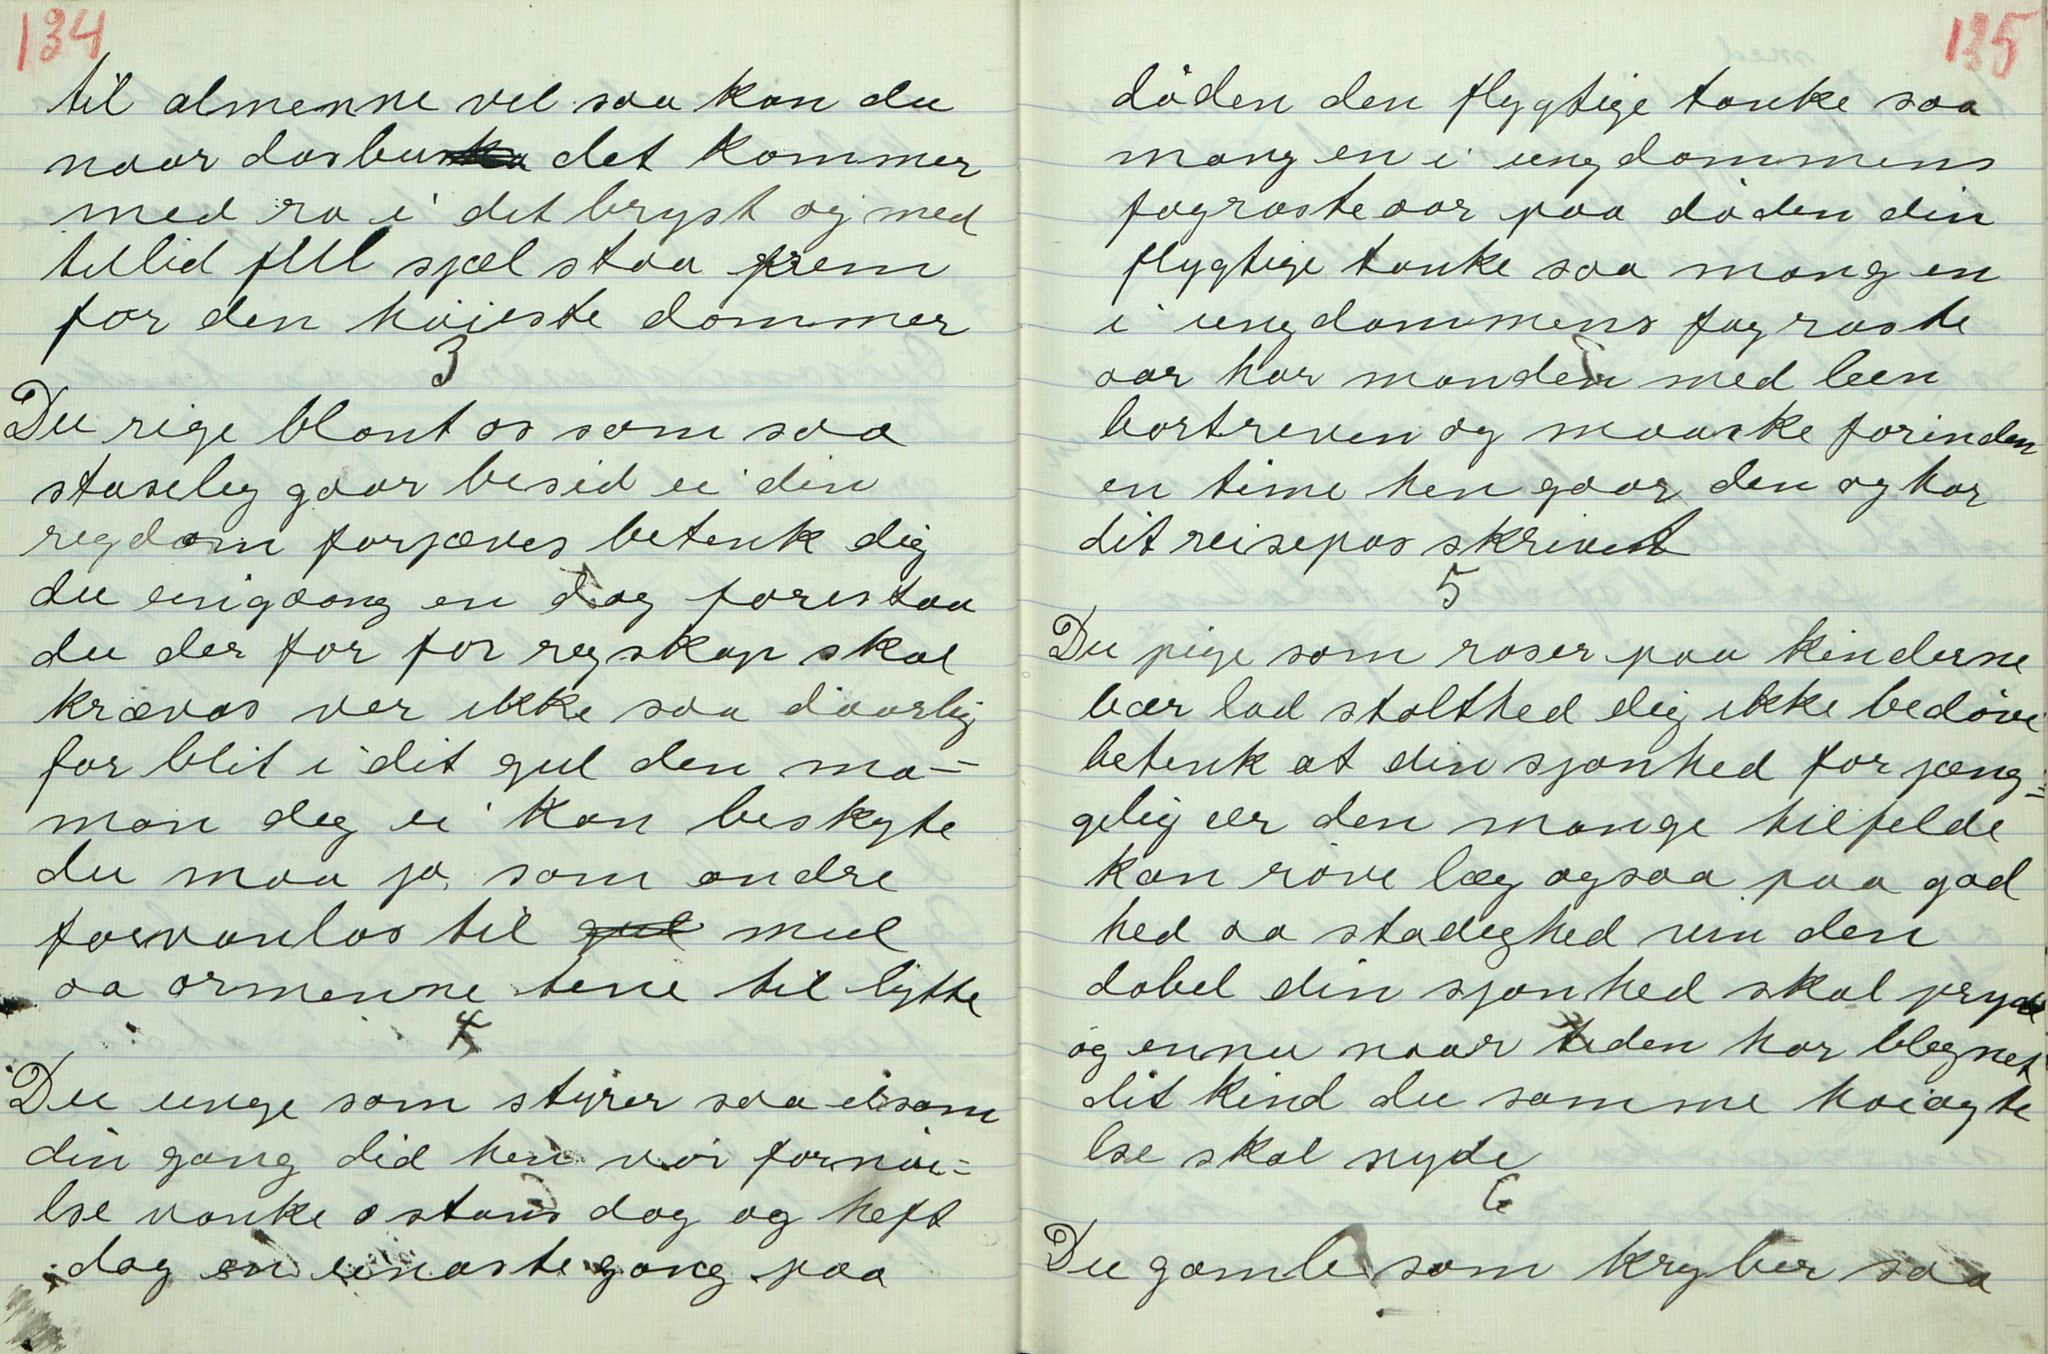 134
til almenne vel saa kan du
naar dasbu det kommer
med ro i det bryst og med
tillid full sjæl staa frem
for den høieste dommer
3
Du rige blant os som saa
staselig gaar besid ei din
regdom forjæves betenk dig
du einigaang en dag forestaa
du der for for regskap skal
kræves ver ikke saa daarlig
for blit i dit gul den ma-
mon deg ei kan beskyte
du maa jo som andre
forvanlos til gul mul
aa ormenne tene til bytte
4
Du unge som styrer saa eisom
din gang did hen vor fornøi-
lse vanke o stans dag og heft
dag en einaste gang paa
135
døden den flygtige tanke saa
mang en i ungdommens
fagraste aar paa døden din
flygtige tanke saa mang en
i ungdommens fagraste
aar har manden med leen
bortreven og maaske forinden
en time hen gaar den og har
dit reisepas skrivet
5
Du pige som roser paa kinderne
bær lad stolthed dig ikke bedøve
betenk at din sjønhed forjæng=
gelig er den mange tilfelde
kan røve læg ogsaa paa god
hed aa stadeghed vin den
dobel din sjønhed skal pryde
og ennu naar tiden har blegnet
dit kind du samme høiagte
lse skal nyde
6
Du gamle som kryber saa